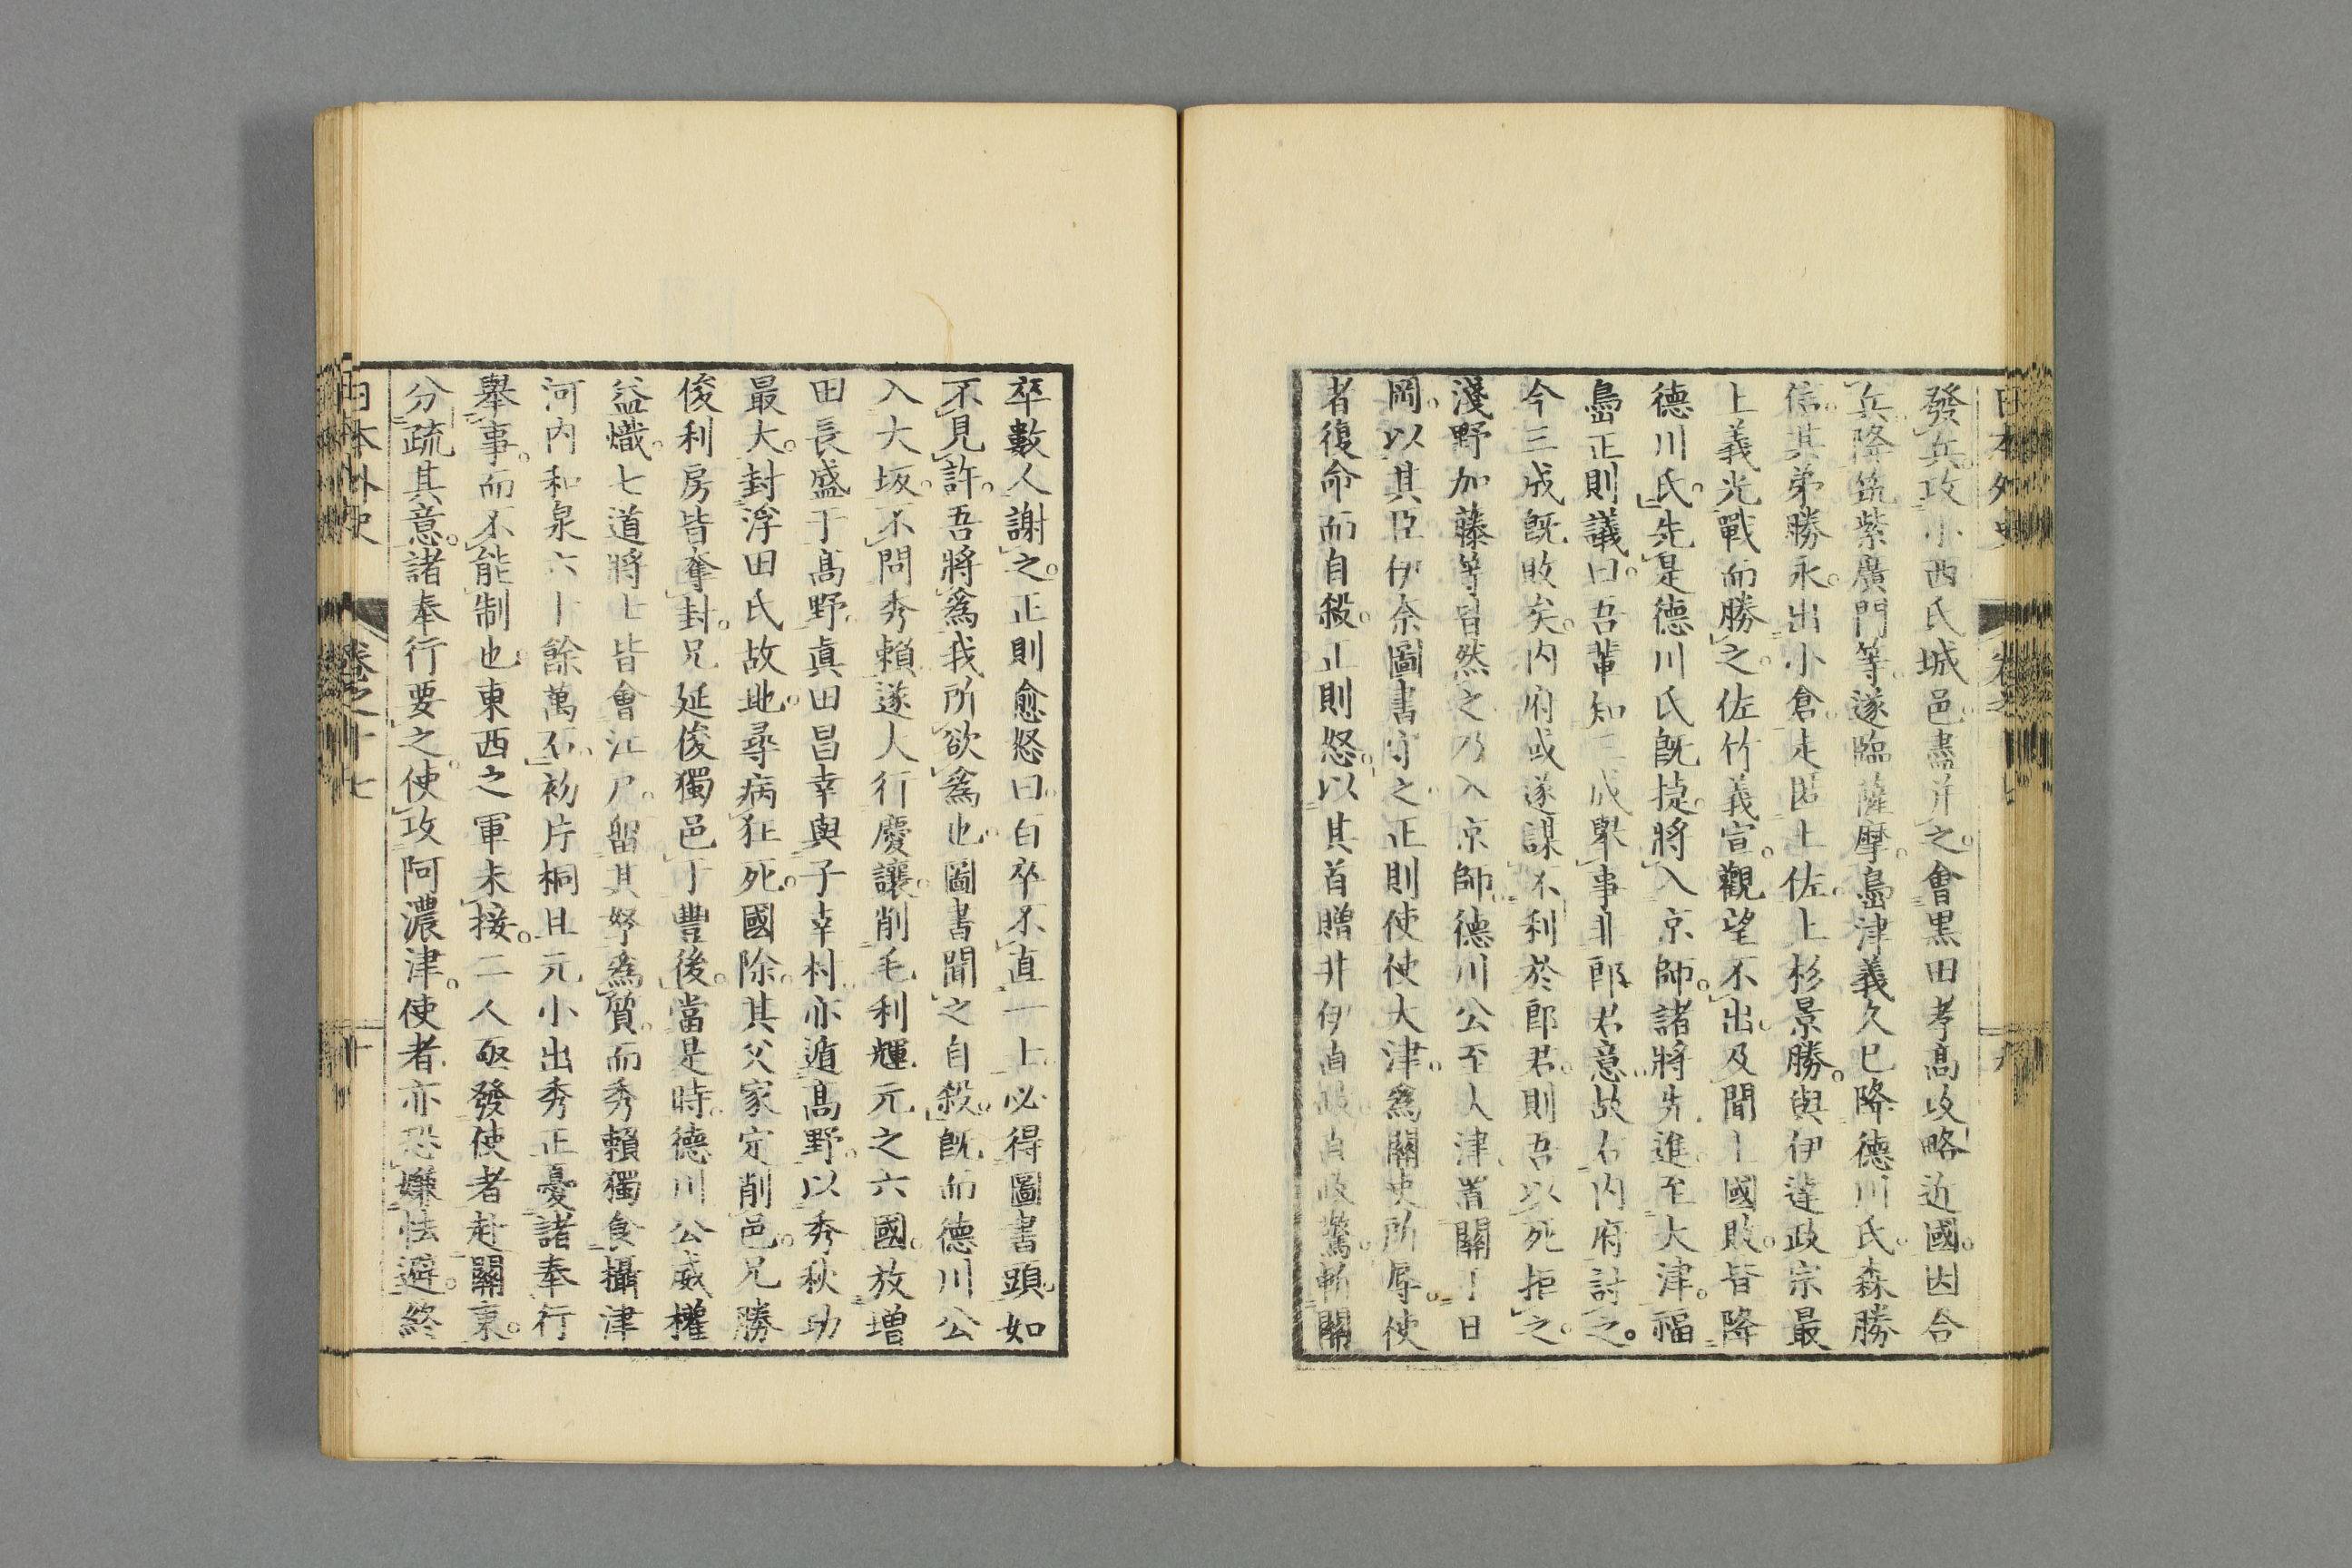 日本外史
卷之
九
發兵攻小西氏城邑。盡并之。會黒田孝高攻略近國。因合
兵降筑紫廣門等。遂臨薩摩。島津義久已降德川氏。森勝
信。其弟勝永。出小倉。走匿土佐。上杉景勝。與伊達政宗最
上義光戰而勝之。佐竹義宣。觀望不出。及聞上國敗。皆降
德川氏。先是德川氏既捷。將入京師。諸將先進。至大津。福
島正則議曰。吾輩知三成舉事非郎君意。故右内府討之。
今三成既敗矣。内府或遂謀不利於郎君。則吾以死拒之。
淺野加藤等皆然之。乃入京師。德川公至大津。置關于日
岡。以其臣伊奈圖書守之。正則使使大津。為關吏所辱。使
者復命而自殺。正則怒。以其首贈井伊直政。直政驚。斬關
卒數人謝之。正則愈怒曰。百卒不直一士。必得圖書頭。如
不見許。吾將爲我所欲爲也。圖書聞之自殺。既而德川公
入大坂。不問秀賴。遂大行慶讓。削毛利輝元之六國。放増
田長盛于高野。眞田昌幸與子幸村。亦遁高野。以秀秋功
最大。封浮田氏故地。尋病狂死。國除。其父家定削邑。兄勝
俊利房皆奪封。兄延俊獨邑于豐後。當是時。德川公威權
益熾。七道將士皆會江戸。留其孥爲質。而秀賴獨食攝津
河内和泉六十餘萬石。初片桐且元小出秀正憂諸奉行
舉事。而不能制也。東西之軍未接。二人亟發使者赴關東。
分疏其意。諸奉行要之。使攻阿濃津。使者亦恐嫌怯避。終
日本外史
卷之十七
十